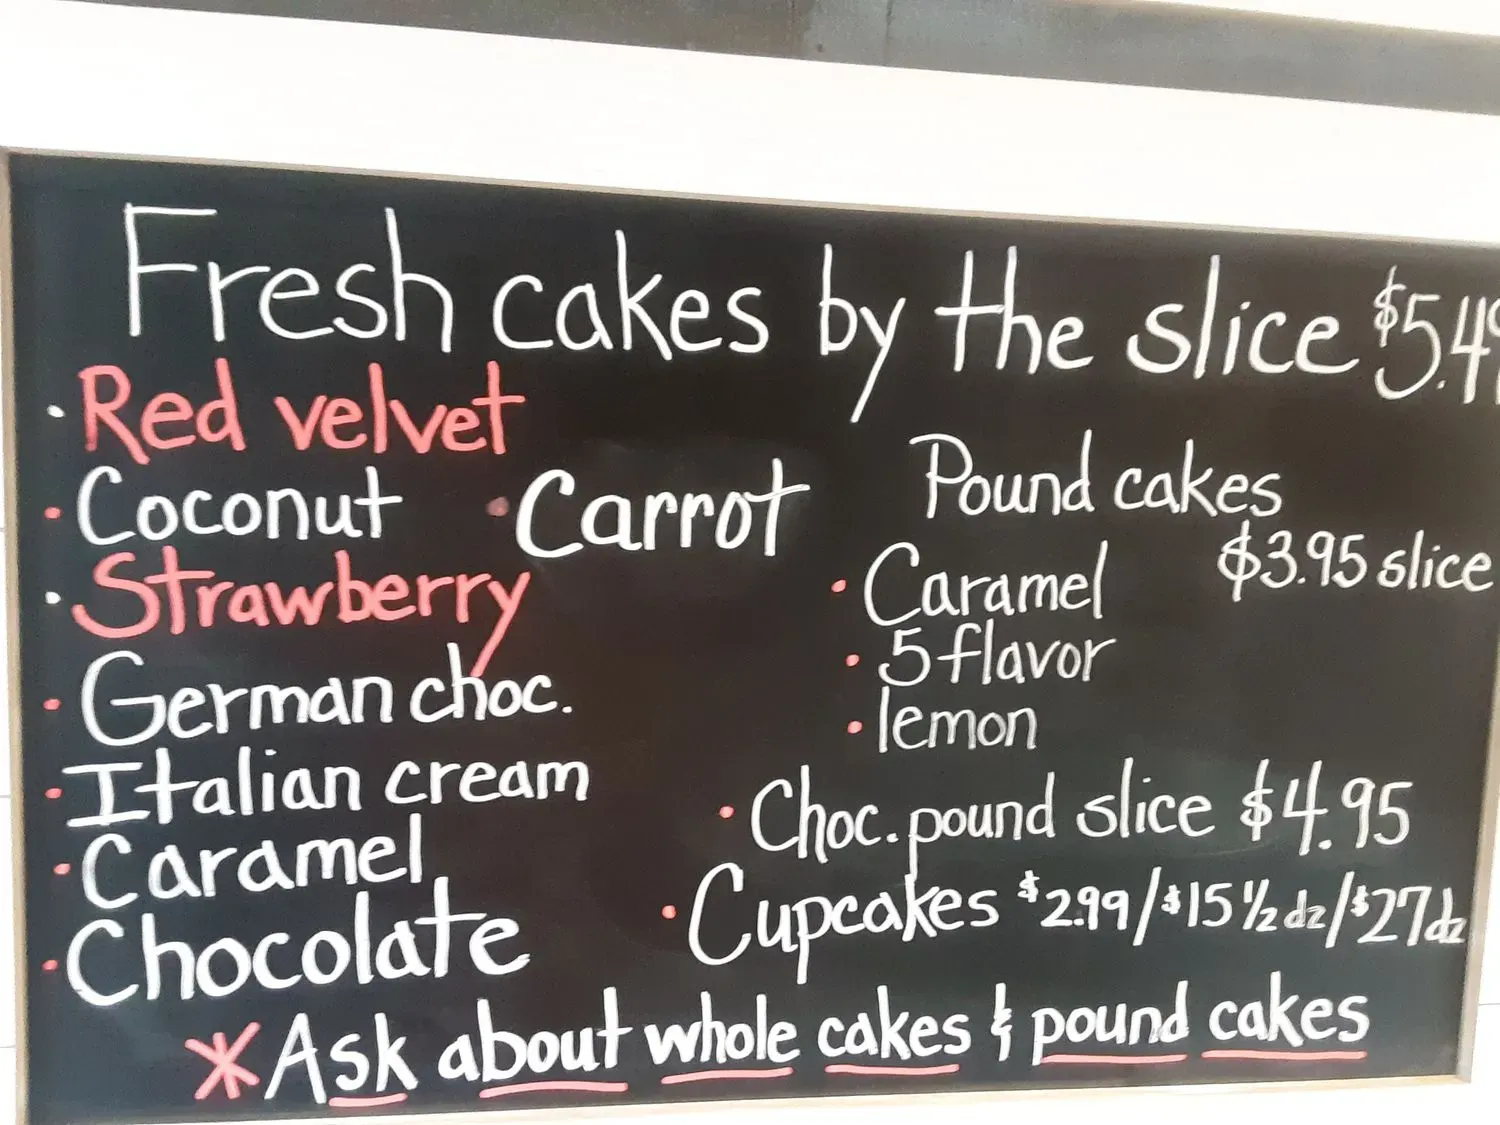 Fresh cakes by the slice $5.49
• Red velvet
• Coconut • Carrot
• Strawberry
• German choc.
• Italian cream
• Caramel
• Chocolate
Pound cakes
$3.95 slice
• Caramel
• 5 flavor
• lemon
• Choc. pound slice $4.95
• Cupcakes $2.99/$15 1/2 dz/$27 dz
* Ask about whole cakes & pound cakes